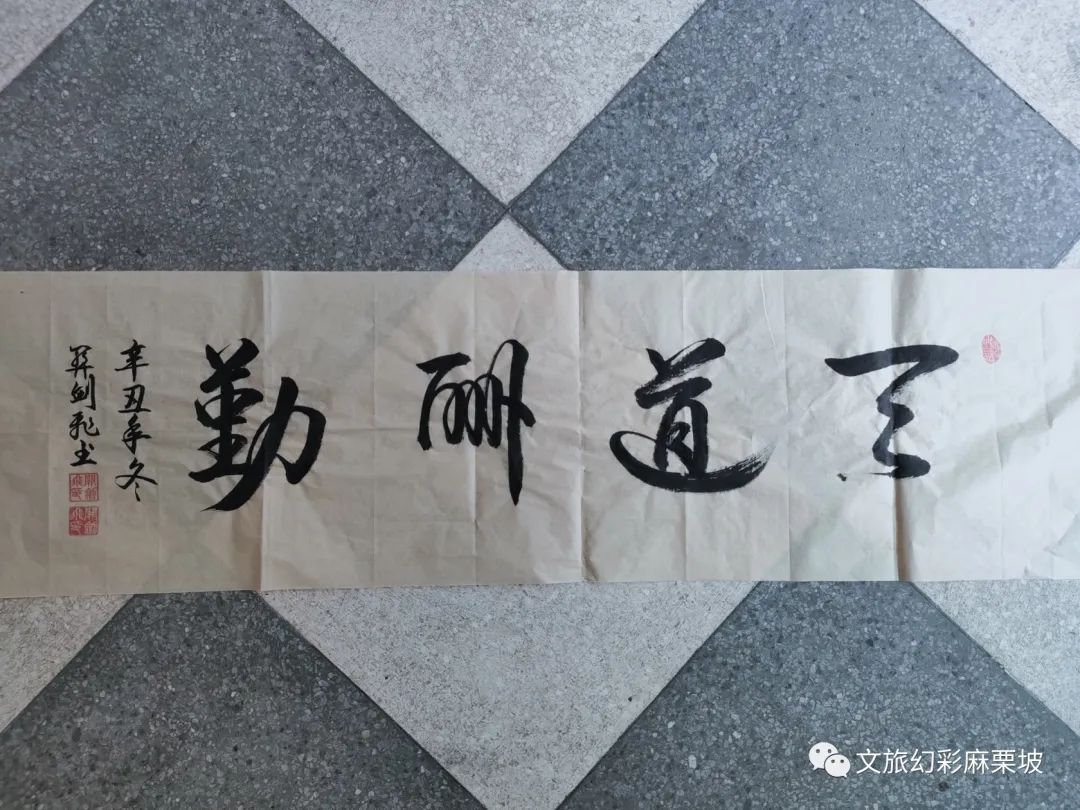 天道酬勤
辛丑年冬
剑飞书
文旅幻彩麻栗坡